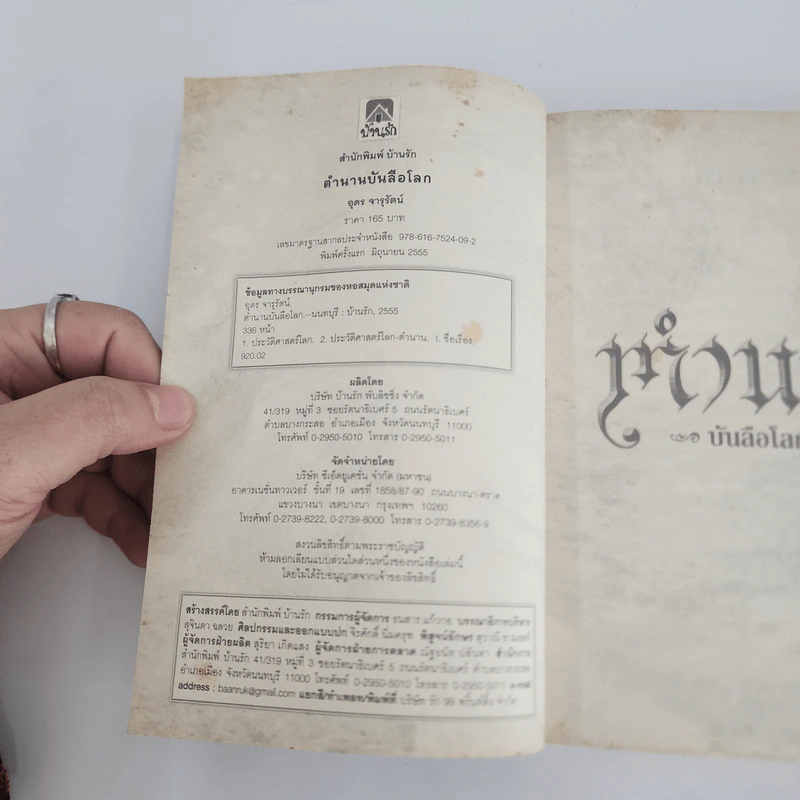 บ้านรัก
สำนักพิมพ์ บ้านรัก
ตำนานบันลือโลก
อุดร จารุรัตน์
ราคา 165 บาท
เลขมาตรฐานสากลประจำหนังสือ 978-616-7524-09-2
พิมพ์ครั้งแรก มิถุนายน 2555
ข้อมูลทางบรรณานุกรมของหอสมุดแห่งชาติ
อุดร จารุรัตน์.
ตำนานบันลือโลก.--นนทบุรี : บ้านรัก, 2555
336 หน้า
1. ประวัติศาสตร์โลก. 2. ประวัติศาสตร์โลก-ตำนาน. I. ชื่อเรื่อง.
920.02
ผลิตโดย
บริษัท บ้านรัก พับลิชชิ่ง จำกัด
41/319 หมู่ที่ 3 ซอยรัตนาธิเบศร์ 5 ถนนรัตนาธิเบศร์
ตำบลบางกระสอ อำเภอเมือง จังหวัดนนทบุรี 11000
โทรศัพท์ 0-2950-5010 โทรสาร 0-2950-5011
จัดจำหน่ายโดย
บริษัท ซีเอ็ดยูเคชั่น จำกัด (มหาชน)
อาคารเนชั่นทาวเวอร์ ชั้นที่ 19 เลขที่ 1858/87-90 ถนนบางนา-ตราด
แขวงบางนา เขตบางนา กรุงเทพฯ 10260
โทรศัพท์ 0-2739-8222, 0-2739-8000 โทรสาร 0-2739-8356-9
สงวนลิขสิทธิ์ตามพระราชบัญญัติ
ห้ามลอกเลียนแบบส่วนใดส่วนหนึ่งของหนังสือเล่มนี้
โดยไม่ได้รับอนุญาตจากเจ้าของลิขสิทธิ์
สร้างสรรค์โดย สำนักพิมพ์ บ้านรัก กรรมการผู้จัดการ ธนสาร แก้วกอ บรรณาธิการบริหาร
สุจินดา ฉลวย ศิลปกรรมและออกแบบปก จิรศักดิ์ พิสูจน์อักษร สุวาณี
ผู้จัดการฝ่ายผลิต สุริยา เกิดแสง ผู้จัดการฝ่ายการตลาด สำนักงาน
สำนักพิมพ์ บ้านรัก 41/319 หมู่ที่ 3 ซอยรัตนาธิเบศร์ 5 ถนนรัตนาธิเบศร์ ตำบลบางกระสอ
อำเภอเมือง จังหวัดนนทบุรี 11000 โทรศัพท์ 0-2950-5010 โทรสาร 0-2950-5011
address : baanruk@gmail.com แยกสี/ทำเพลท/พิมพ์ที่ บริษัท รัก 99 พริ้นติ้ง จำกัด
ตำนาน
บันลือโลก